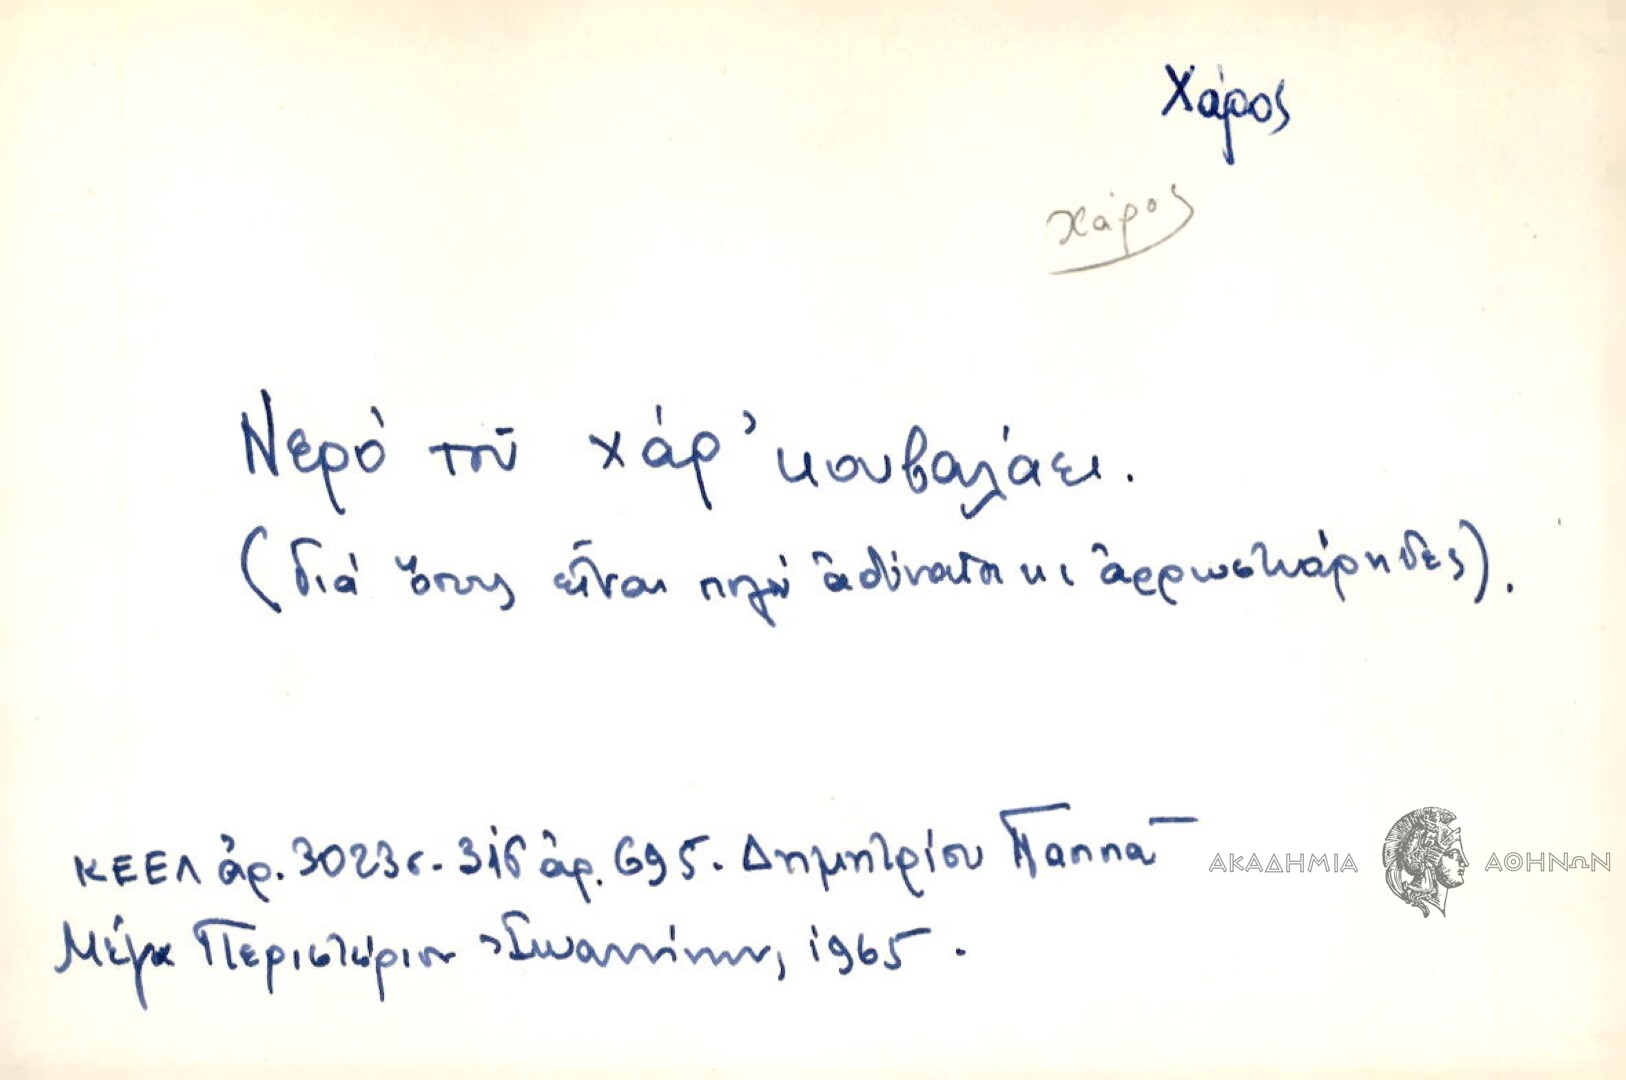 Χάρος
Χάρος
Νερό τοῦ χάρ' κουβαλάει.
(διά ὅσους εἶναι πολύ ἀδύνατοι κι ἀρρωστιάρηδες).
ΚΕΕΛ ἀρ. 3023 σ. 316 ἀρ. 695. Δημητρίου Παππᾶ
Μέγα Περιστέριον Ἰωαννίνων, 1965.
ΑΚΑΔΗΜΙΑ ΑΘΗΝΩΝ